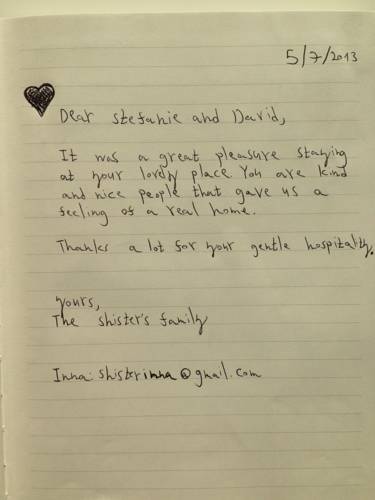 5/7/2013
Dear Stefanie and David,
It was a great pleasure staying
at your lovely place. You are kind
and nice people that gave us a
feeling of a real home.
Thanks a lot for your gentle hospitality.
yours,
The shister's family
Inna: shisterinna@gmail.com